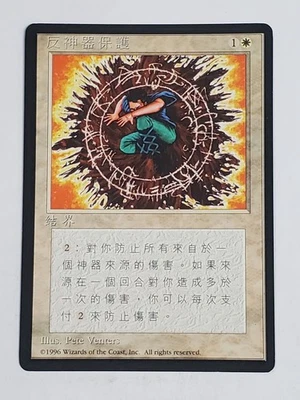 反神器保護 1
結界
2：對你防止所有來自於一
個神器來源的傷害。如果來
源在一個回合對你造成多於
一次的傷害，你可以每次支
付 2 來防止傷害。
Illus. Pete Venters
©1996 Wizards of the Coast, Inc. All rights reserved.